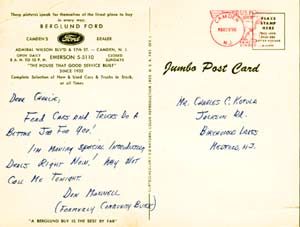 These pictures speak for themselves of the finest place to buy
in every way.
BERGLUND FORD
CAMDEN'S Ford DEALER
ADMIRAL WILSON BLVD & 17th ST. - CAMDEN, N. J.
OPEN DAILY EMERSON 5-5110 CLOSED
8 A.M. TO 10 P.M. SUNDAYS
"THE HOUSE THAT GOOD SERVICE BUILT"
SINCE 1922
Complete Selection of New & Used Cars & Trucks in Stock,
at all Times
Dear Charlie,
Ford Cars and Trucks Do A
Better Job For You!
I'm Making Special Introductory
Deals Right Now! Why Not
Call Me Tonight.
Don Maxwell
(Formerly Community Buick)
"A BERGLUND BUY IS THE BEST BY FAR"
CAMDEN
N.J.
PLACE
STAMP
HERE
Jumbo Post Card
Mr. Charles C. Kotula
Jackson Rd.
Birchwood Lakes
Medford, N.J.